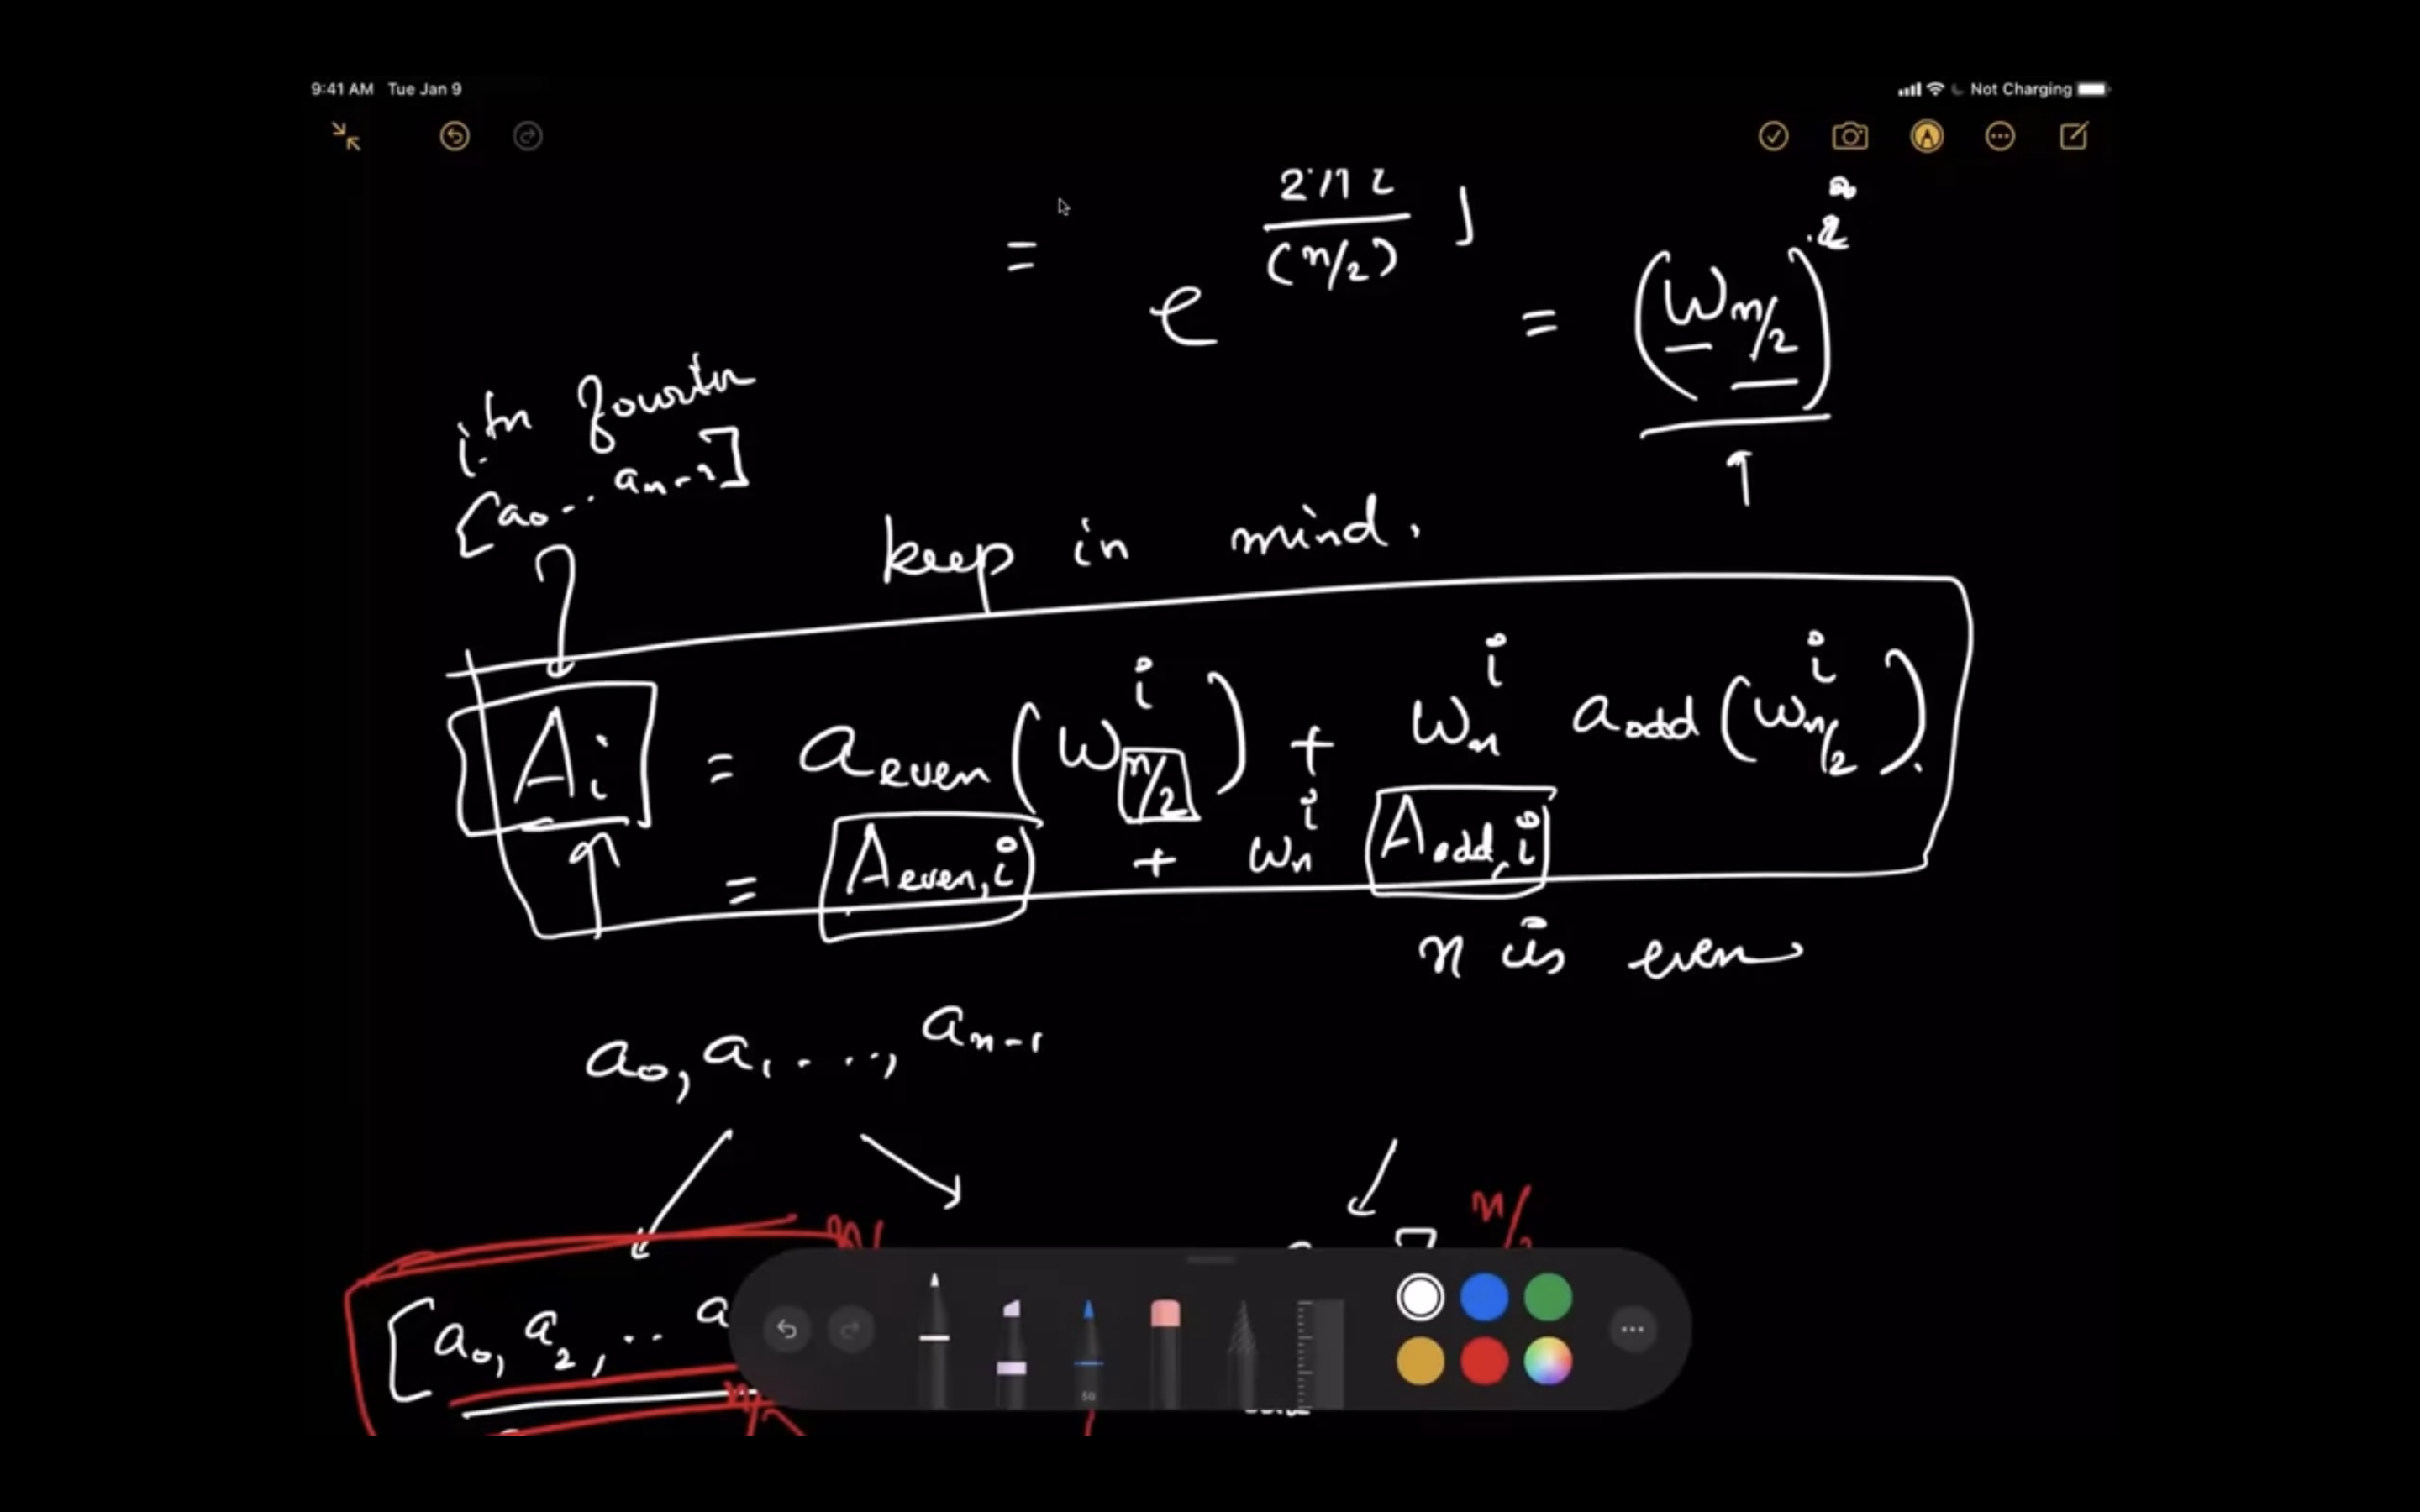 9:41 AM Tue Jan 9
Not Charging
= e^{\frac{2\pi i}{(n/2)} j} = (ω_{n/2})^{i}
ith fourier
[a_0 .. a_{n-1}]
keep in mind.
A_i = a_{even}(ω_{n/2}^i) + ω_n^i a_{odd}(ω_{n/2}^i).
= A_{even,i} + ω_n^i A_{odd,i}
n is even
a_0, a_1 . . . , a_{n-1}
n/
n/2
[a_0, a_2, .. a
50